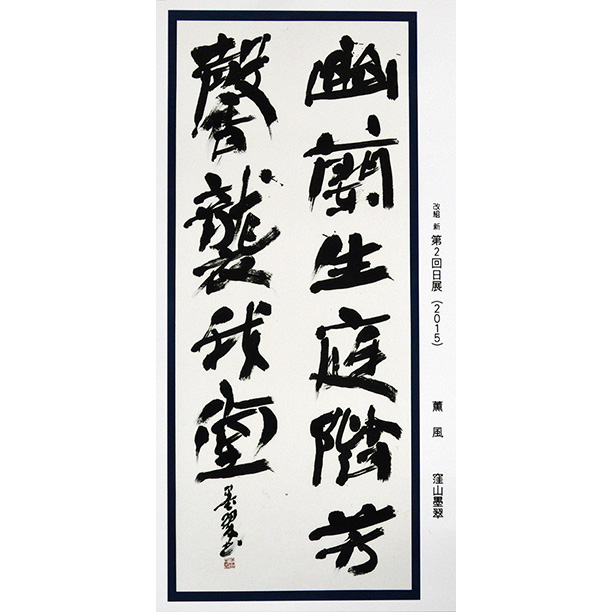 幽蘭生庭階芳
馨襲我堂
墨翠
改組 新 第2回日展(2015) 薫風 窪山墨翠